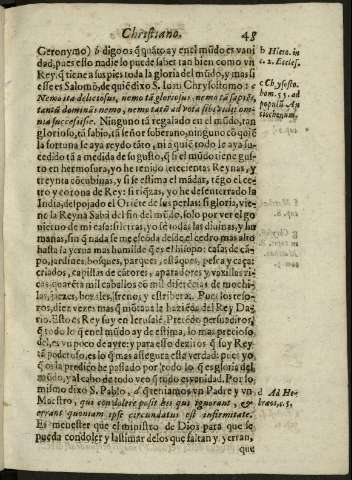 Christiano. 48
Geronymo) õ digo os q̃ quãto ay en el mũdo es vani
dad, pues esso nadie lo puede saber tan bien como vn
Rey. q̃ tiene a sus pies toda la gloria del mũdo, y mas si
esse es Salomõ, de quiẽ dixo S. Iuan Chrysostomo: c
Nemo ita deliciosus, nemo tã gloriosus, nemo tã sapiẽs,
tantũ dominãs nemo, nemo tã ad vota sibi
nia successisse. Ninguno tã regalado en el mũdo, tan
glorioso, tã sabio, tã señor soberano, ninguno cõ quiẽ
la fortuna le aya reydo tãto, ni a quiẽ todo le aya su-
cedido tã a medida de su gusto, q̃ si el mũdo tiene gus-
to en hermosura, yo he tenido setecientas Reynas, y
treynta cõcubinas, y si se estima el mãdar, tẽgo el ce-
tro y corona de Rey: si riq̃zas, yo he desenterrado la
India, despojado el Oriẽte de sus perlas: si gloria, vie-
ne la Reyna Sabà del fin del mũdo, solo por ver el go
uierno de mi casa: si letras, yo sè todas las diuinas, y hu
manas, sin q̃ nada se me escõda desde el cedro mas alto
hasta la yerua mas humilde q̃ es el hisopo: casas de cã-
po, jardines, bosques, parques, estãques, pesca y caça:
criados, capillas de cãtores, aparadores y vaxillas ri-
cas, quarẽta mil cauallos cõ mil diferẽcias de mochi-
las, jaezes, bozales, frenos, y estriberas. Pues los teso-
ros, diez vezes mas q̃ mõtaua la hazieda del Rey Da-
rio. Esto es Rey fuy en Ierusalẽ. Precedo persuadiros,
q̃ todo lo q̃ en el mũdo ay de estima, lo mas precioso
del, es vn poco de ayre; y para esso dezir os q̃ fuy Rey
tã poderoso, es lo q̃ mas assegura esta verdad: pues yo
q̃ os la predico he passado por todo lo q̃ es gloria del
mũdo, y al cabo de todo veo q̃ todo es vanidad. Por lo
mismo dixo S. Pablo, d q̃ teniamos vn Padre y vn
Maestro, qui condolere possit his qui ignorant, &
errant quoniam ipse circundatus est infirmitate.
Es menester que el ministro de Dios para que se
pueda condoler y lastimar de los que faltan y yerran,
que
b Hiero. in
c. 2. Eccles.
c Chrysost.
hom. 55. ad
populũ An
tiochenum.
d Ad He-
bræos, c. 5.